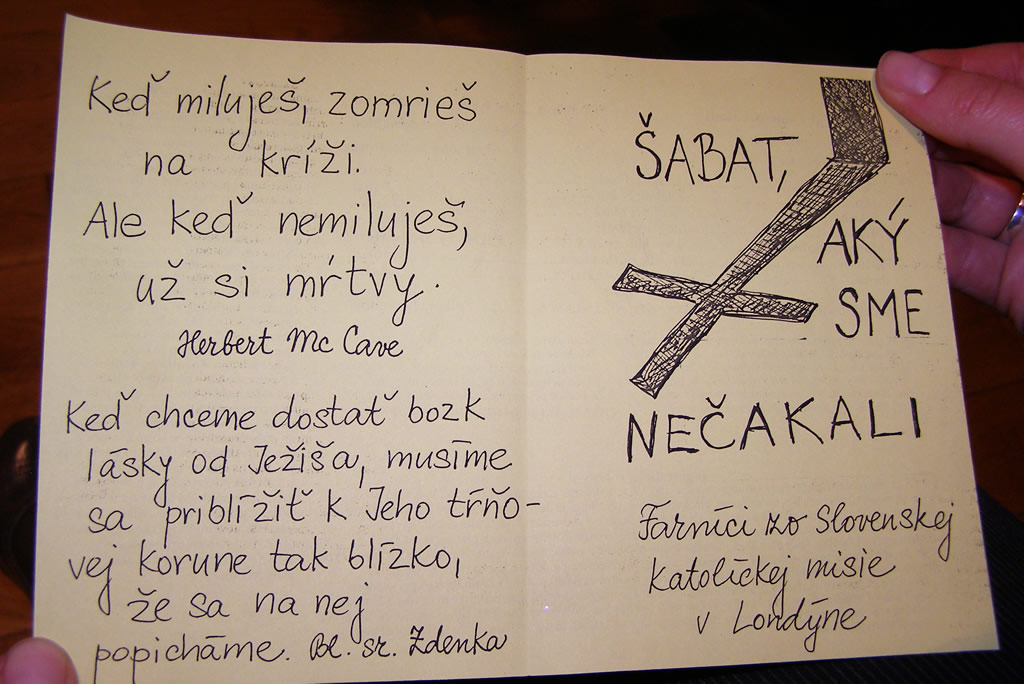 Keď miluješ, zomrieš
na kríži.
Ale keď nemiluješ,
už si mŕtvy.
Herbert Mc Cave
Keď chceme dostať bozk
lásky od Ježiša, musíme
sa priblížiť k Jeho tŕňo-
vej korune tak blízko,
že sa na nej
popicháme. Bl. sr. Zdenka
ŠABAT,
AKÝ
SME
NEČAKALI
Farníci zo Slovenskej
katolíckej misie
v Londýne